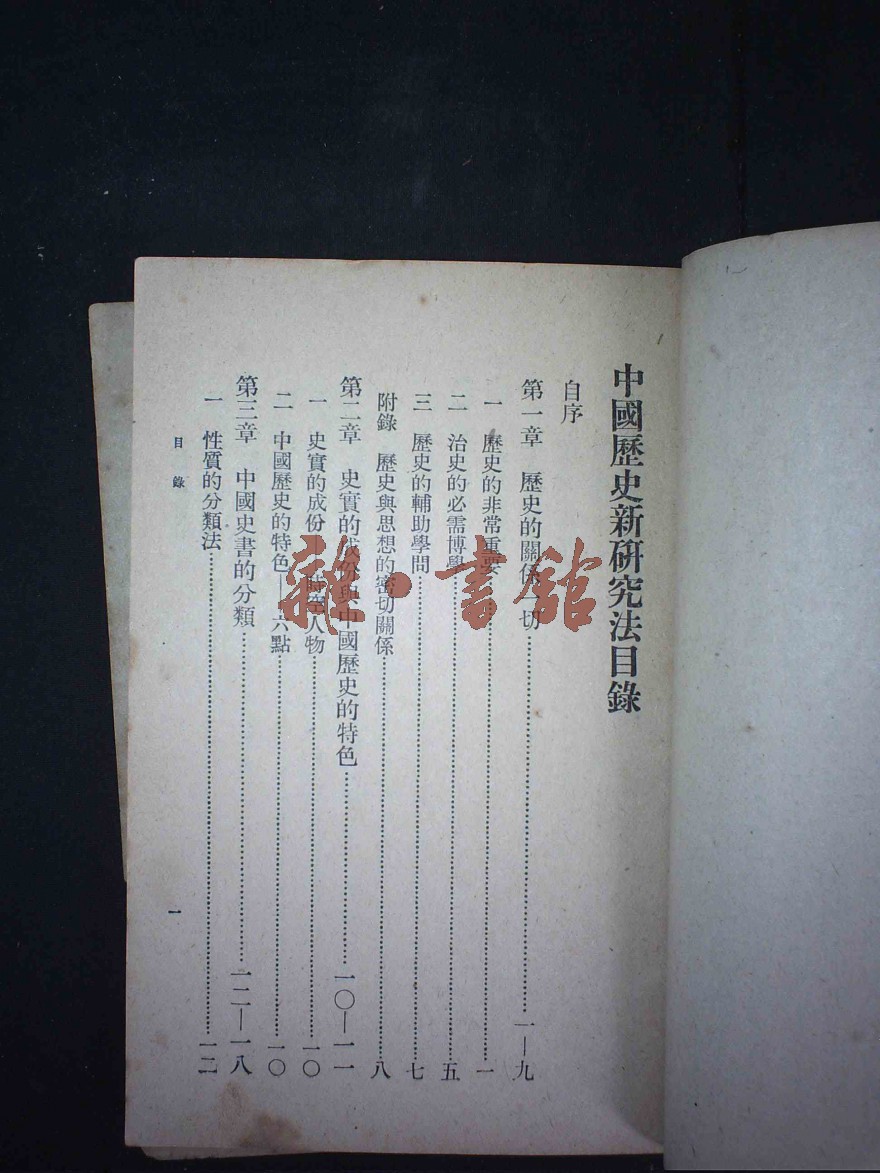 中國歷史新研究法目錄
自序
第一章 歷史的關係一切……一—九
一 歷史的非常重要……一
二 治史的必需博學……五
三 歷史的輔助學問……七
附錄 歷史與思想的密切關係……八
第二章 史實的成份與中國歷史的特色……一〇—一一
一 史實的成份——時空人物……一〇
二 中國歷史的特色——六點……一〇
第三章 中國史書的分類……一二—一八
一 性質的分類法……一二
目錄
一
雜·書館